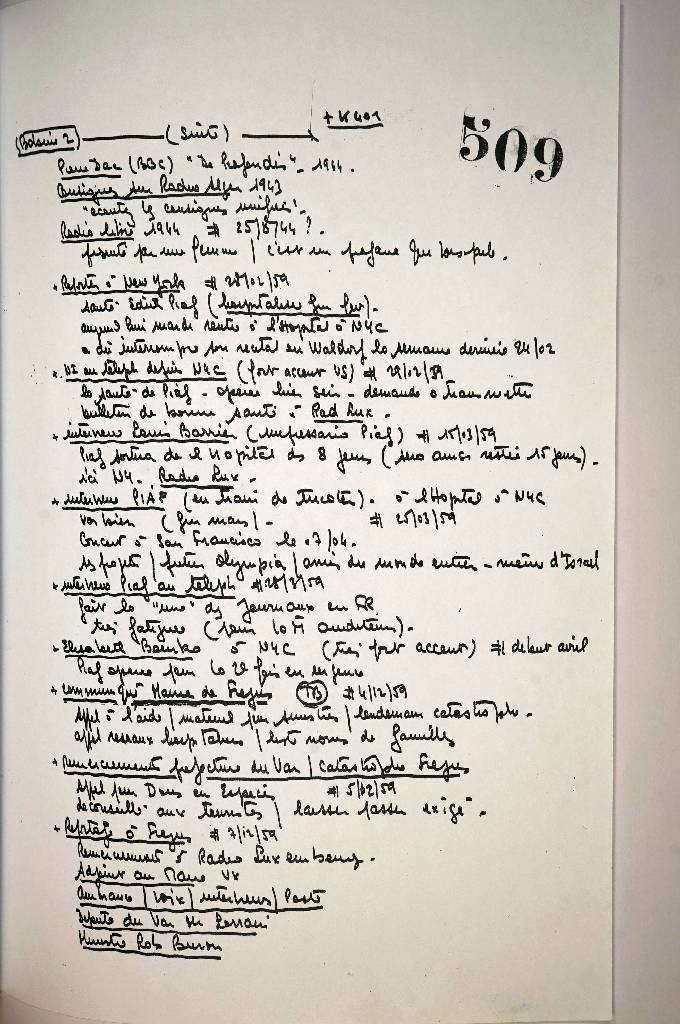 + K 401
509
(Suite)
Pierre Dac (BBC) "De Profundis" - 1944.
Consignes sur Radio Alger 1943
"écoutez les consignes
Radio libre 1944 # 25/8/44 ?.
par une femme / c'est un
+ Reporter à New York # 28/02/59
santé Edith Piaf (hospitalisée
aujourd'hui mardi rentre à l'Hopital à NYC
a dû interrompre son récital au Waldorf la semaine dernière 24/02
au téleph depuis NYC (fort accent US) # 29/02/59
la santé de Piaf - opérée hier soir - demande à transmettre
bulletin de bonne santé à Rad Lux.
+ interview Louis Barrier (impressario Piaf) # 15/03/59
Piaf sortira de l'Hopital ds 8 jours
ici NY. Radio Lux.
+ interview PIAF (en train de tricoter). à l'Hopital à NYC
va bien # 25/03/59
Concert à San Francisco le 07/04.
ses projets / futur Olympia / amis du monde entier - même d'Israel
+ interview Piaf au téleph # 28/3/59
fait la "une" des journaux en FR
très fatiguée
à NYC (très fort accent) # début avril
Piaf opérée pour la 2e fois en
+ communiqué Mairie de Frejus (TB) # 4/12/59
Appel à l'aide / materiel pour sinistrés / lendemain catastrophe.
/ liste noms de familles
+ Remerciements prefecture du Var / catastrophe Frejus
Appel pour Dons en Espèces # 5/02/59
deconseillé aux touristes / laisser passer exigé.
+ Reportage à Frejus # 7/12/59
Remerciement à Radio Luxembourg.
Adjoint au Maire VX
Ambiance / Voix / interviews /
Député du Var Mr
Ministre Rob Buron